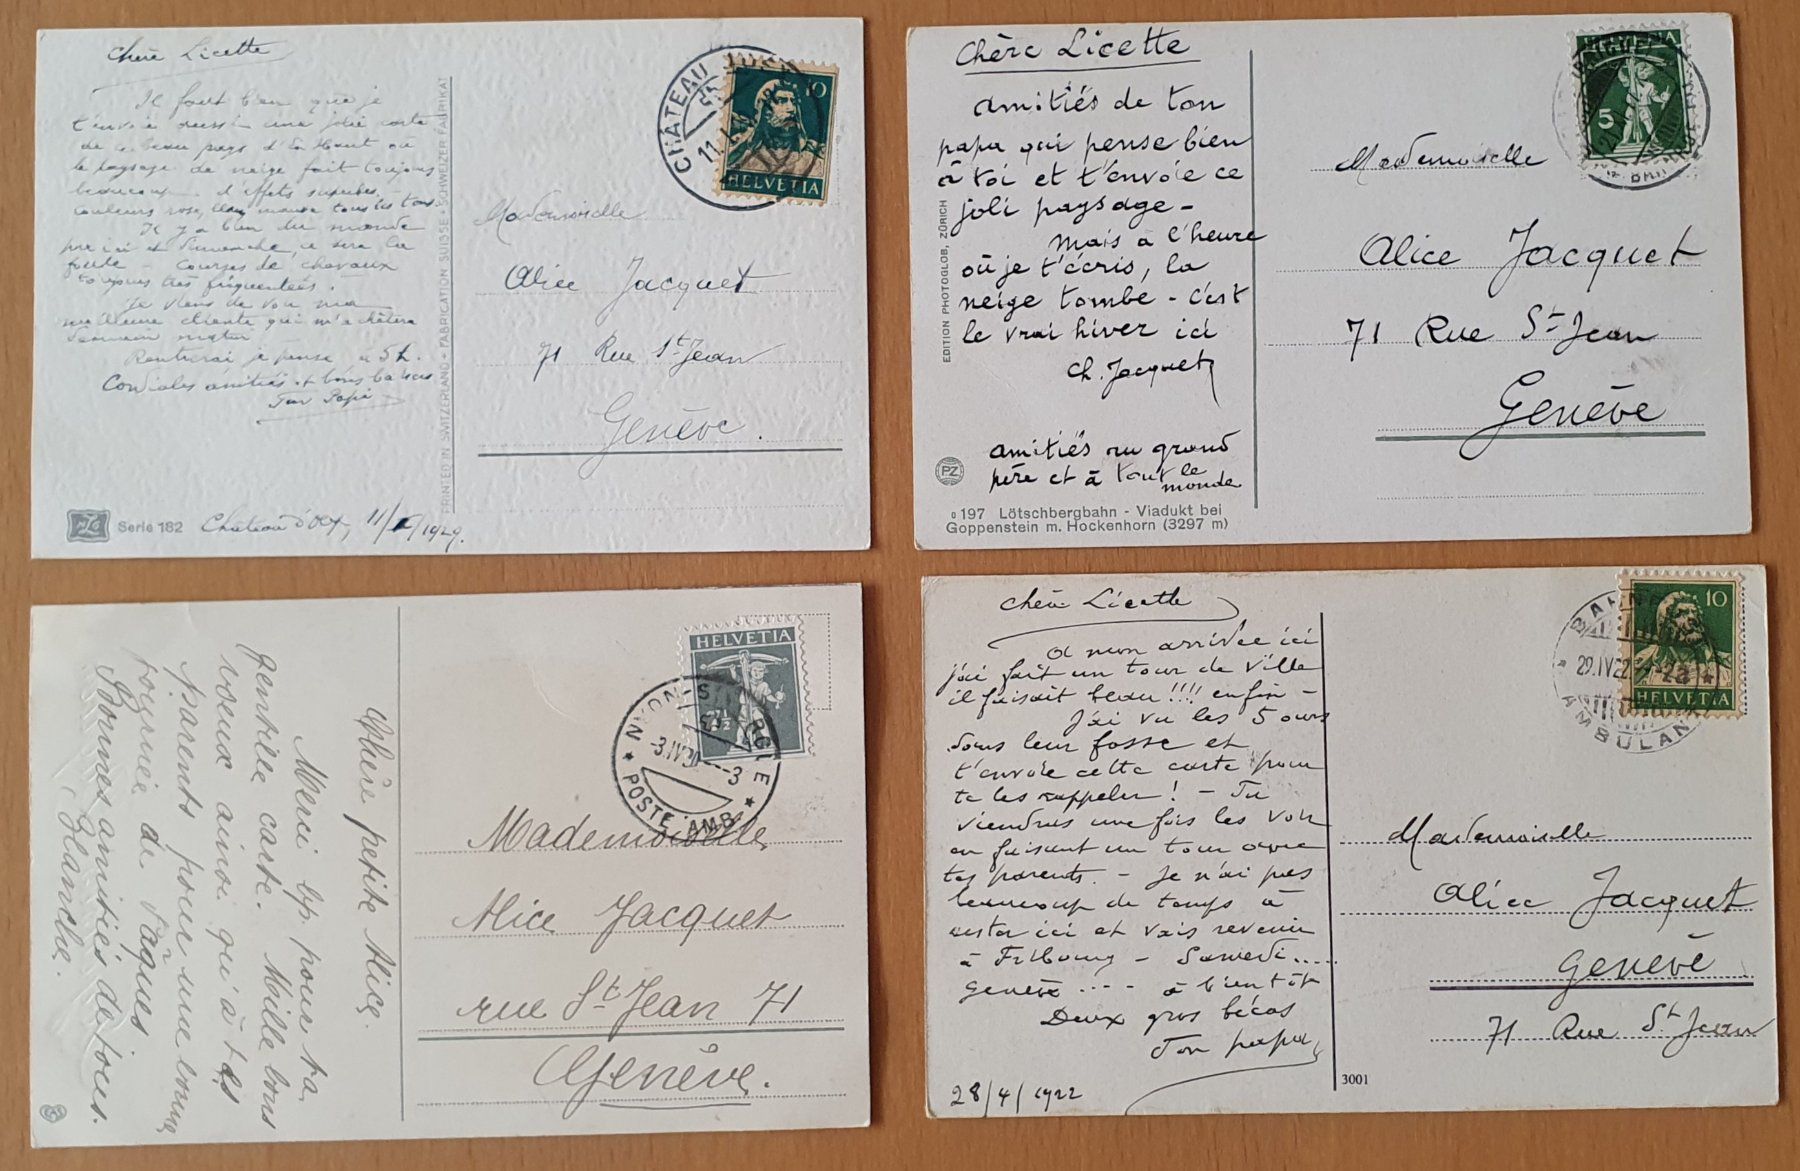 Chère Licette
Il faut bien que je
t'envoie aussi une jolie carte
de ce beau pays d'en Haut où
le paysage de neige fait toujours
beaucoup d'effets superbes -
couleurs rose, mauve tous les tons.
Il y a bien du monde
par ici et Dimanche ce sera la
foule - Courses de chevaux
toujours très fréquentées.
Je viens de voir ma
meilleure cliente qui m'a
Rentrerai je pense à 5h.
Cordiales amitiés + bons baisers
Ton Papa
Serie 182
Château d'Oex, 11/1/1929.
PRINTED IN SWITZERLAND • FABRICATION SUISSE • SCHWEIZER FABRIKAT
CHÂTEAU
10
HELVETIA
Mademoiselle
Alice Jacquet
71 Rue St Jean
Genève.
Chère Licette
amitiés de ton
papa qui pense bien
à toi et t'envoie ce
joli paysage -
Mais à l'heure
où je t'écris, la
neige tombe - c'est
le vrai hiver ici
Ch. Jacquet
amitiés au grand
père et à tout le
monde
EDITION PHOTOGLOB, ZÜRICH
PZ
0197 Lötschbergbahn - Viadukt bei
Goppenstein m. Hockenhorn (3297 m)
HELVETIA
5
Mademoiselle
Alice Jacquet
71 Rue St Jean
Genève
Chère petite Alice.
Merci bp pour ta
gentille carte. Mille bons
voeux ainsi qu'à tes
parents pour une bonne
tournée de Pâques
Bonnes amitiés de tous.
Blanche.
HELVETIA
7½
NYON-ST CERGUE
3.IV
3
POSTE AMB.
Mademoiselle
Alice Jacquet
rue St Jean 71
Genève.
Chère Licette
A mon arrivée ici
j'ai fait un tour de Ville
il faisait beau !!!! enfin -
J'ai vu les 5 ours
dans leur fosse et
t'envoie cette carte pour
te les rappeler ! - Tu
viendras une fois les voir
en faisant un tour avec
tes parents. - Je n'ai pas
beaucoup de temps à
rester ici et vais revenir
à Fribourg - Samedi.....
Genève .... à bientôt
Deux gros bécos
Ton papa
28/4/1922
3001
10
HELVETIA
29.IV.22
AMBULANT
Mademoiselle
Alice Jacquet
Genève
71 Rue St Jean